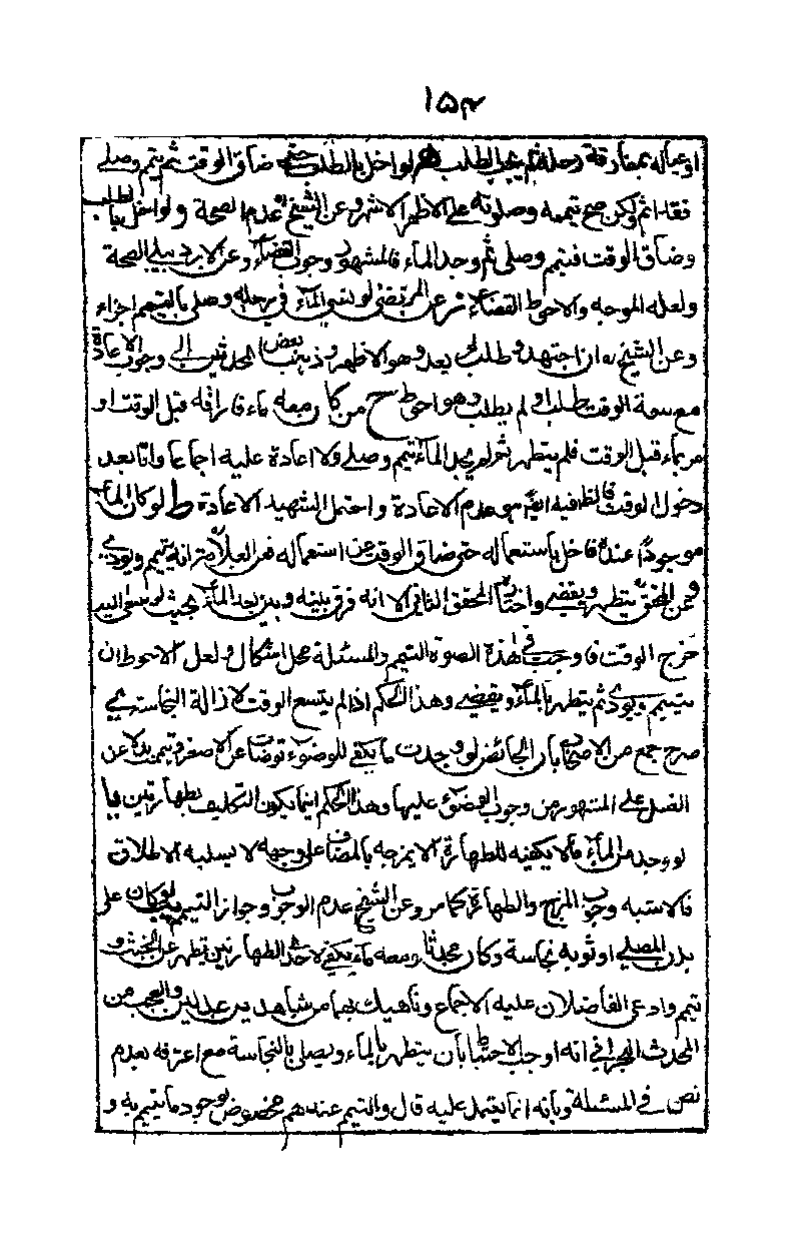 ١٥٣
او عياله بمفارقة رحله لم يجب الطلب لو اخل بالطلب حتى ضاق الوقت ثم تيمم وصلى
فقد اثم ولكن صح تيممه وصلوته على الاظهر الاشهر وعن الشيخ عدم الصحة ولو اخل بالطلب
وضاق الوقت فتيمم وصلى ثم وجد الماء فالمشهور وجوب القضاء وعن الاردبيلى الصحة
ولعله الموجه والاحوط القضاء عن المرتضى لو نسى الماء فى رحله وصلى بالتيمم اجزاء
وعن الشيخ ره ان اجتهد وطلب لم يعد وهو الاظهر وذهب بعض المحدثين الى وجوب الاعادة
مع سعة الوقت طلب او لم يطلب وهو احوط ح من كان معه ماء فاراقه قبل الوقت او
مر بماء قبل الوقت فلم يتطهر ثم لم يجد الماء تيمم وصلى ولا اعادة عليه اجماعا واما بعد
دخول الوقت فالظ فيه ايضا هو عدم الاعادة واحتمل الشهيد الاعادة ط لو كان الماء
موجودا عنده فاخل باستعماله حتى ضاق الوقت عن استعماله فعن العلامة انه يتيمم ويؤدى
وعن المحقق يتطهر ويقضى واختاره المحقق الثانى الا انه فرق بينه وبين بعد الماء بحيث لو سعى اليه
خرج الوقت فاوجب فى هذه الصورة التيمم والمسئلة محل اشكال ولعل الاحوط ان
يتيمم ويؤدى ثم يتطهر بالماء ويقضى وهذا الحكم اذا لم يتسع الوقت لازالة النجاسة ى
صرح جمع من الاصحاب بان الحائض لو وجدت ما يكفى للوضوء توضات عن الاصغر وتيمم بدلا عن
الغسل على المشهور من وجوب الوضوء عليها وهذا الحكم اينما يكون التكليف بطهارتين يا
لو وجد من الماء ما لا يكفيه للطهارة الا بمزجه بالمضاف على وجه لا يسلبه الاطلاق
فالاشبه وجوب المزج والطهارة كما مر وعن الشيخ عدم الوجوب وجواز التيمم يب لو كان على
بدن المصلى او ثوبه نجاسة وكان محدثا ومعه ماء يكفى لاحدى الطهارتين تطهر عن الخبث و
تيمم وادعى الفاضلان عليه الاجماع وناهيك بهما من شاهدين عدلين والعجب من
المحدث البحرانى انه اوجب الاحتياط بان يتطهر بالماء ويصلى بالنجاسة مع اعترافه بعدم
نص فى المسئلة وبانه انما يعمل عليه قال والتيمم عندهم مخصوص بوجود ما يتيمم به و